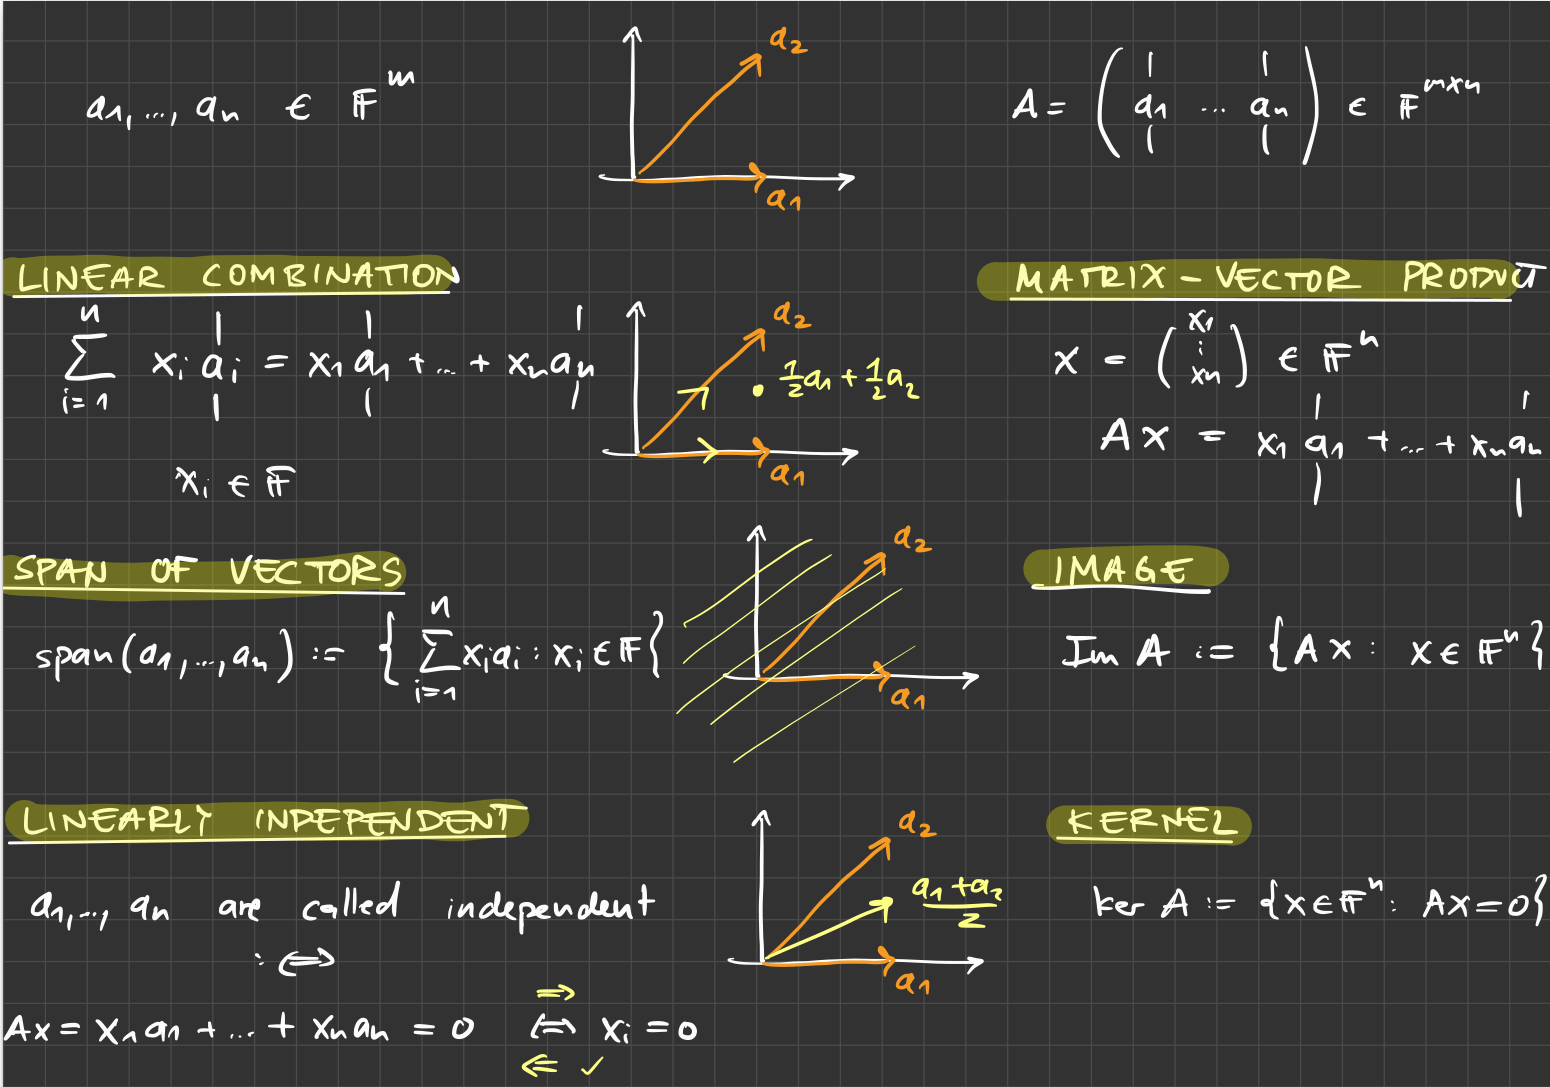 a₁, ..., aₙ ∈ 𝔽ᵐ
a₂
a₁
A = ( a₁ ... aₙ ) ∈ 𝔽ᵐˣⁿ
LINEAR COMBINATION
n
∑ xᵢ aᵢ = x₁ a₁ + ... + xₙ aₙ
i=1
xᵢ ∈ 𝔽
a₂
½a₁ + ½a₂
a₁
MATRIX - VECTOR PRODUCT
x = ( x₁ ⋮ xₙ ) ∈ 𝔽ⁿ
A x = x₁ a₁ + ... + xₙ aₙ
SPAN OF VECTORS
n
span(a₁, ..., aₙ) := { ∑ xᵢaᵢ : xᵢ ∈ 𝔽 }
i=1
a₂
a₁
IMAGE
Im A := { A x : x ∈ 𝔽ⁿ }
LINEARLY INDEPENDENT
a₁, ..., aₙ are called independent
:⟺
⟹
Ax = x₁ a₁ + ... + xₙ aₙ = 0 ⟺ xᵢ = 0
⟸ ✓
a₂
a₁ + a₂
2
a₁
KERNEL
ker A := { x ∈ 𝔽ⁿ : Ax = 0 }